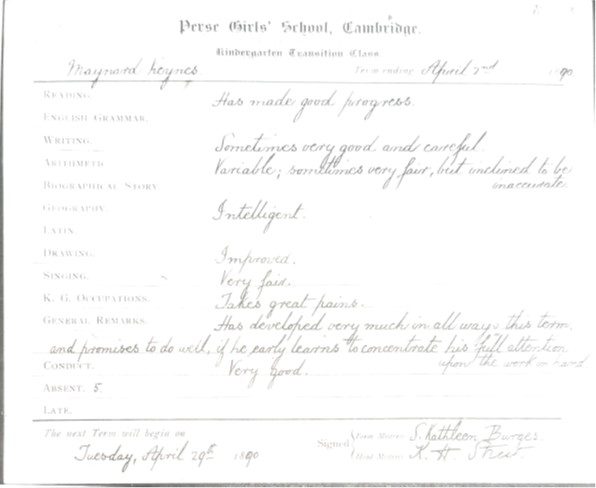 Perse Girls' School, Cambridge.
Kindergarten Transition Class
Maynard Keynes Term ending April 2nd 1890
READING. Has made good progress.
ENGLISH GRAMMAR.
WRITING. Sometimes very good and careful.
ARITHMETIC Variable; sometimes very fair, but inclined to be
BIOGRAPHICAL STORY inaccurate.
GEOGRAPHY. Intelligent.
LATIN
DRAWING. Improved.
SINGING. Very fair.
K. G. OCCUPATIONS. Takes great pains.
GENERAL REMARKS. Has developed very much in all ways this term,
and promises to do well, if he early learns to concentrate his full attention
upon the work in hand
CONDUCT. Very good.
ABSENT. 5.
LATE.
The next Term will begin on
Tuesday, April 29th 1890
Signed
Form Mistress S. Kathleen Burges.
Head Mistress K. H. Street.